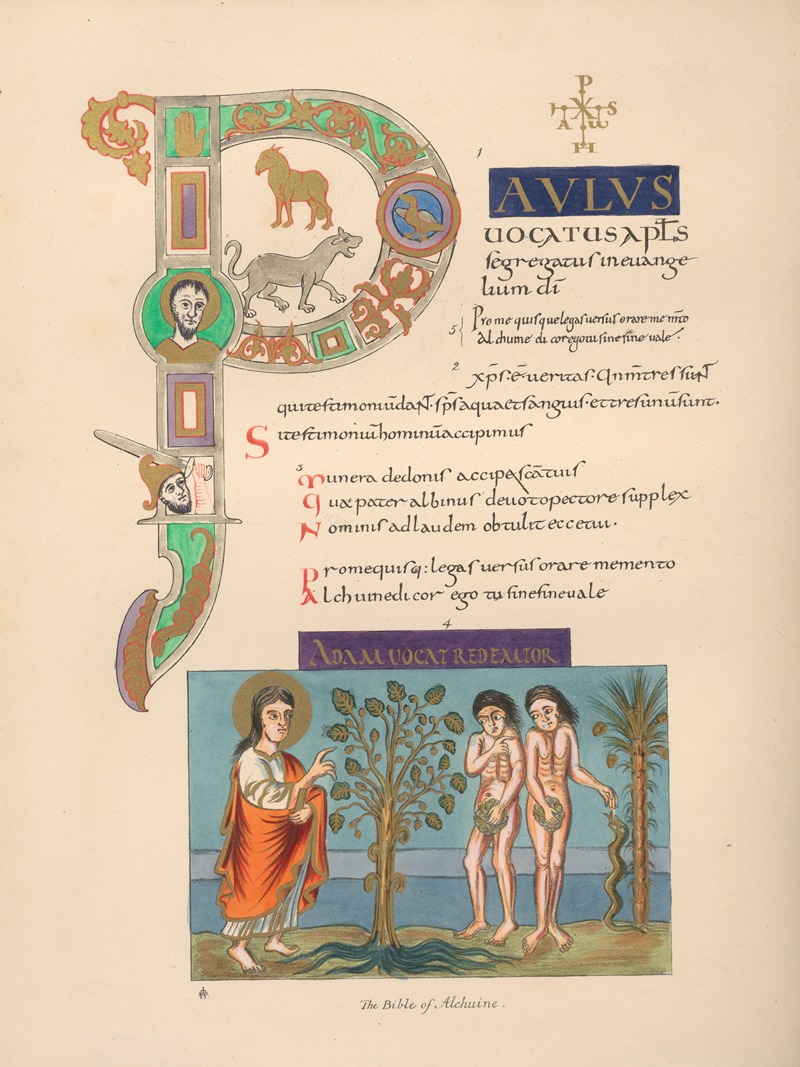 P
P
X
A ω S
H
1
AVLVS
UOCATUS APLS
segregatus in euange
lium di
5 Pro me quisque legas uersus orare memto
Alchuine di cor ego tu sine fine uale.
2
xps. e ueritas. Qnm tres sunt
qui testimoniu dant. sps aqua et sanguis. et tres unu sunt.
Si testimoniu hominu accipimus
3
Munera de donis accipe sca tuis
Quae pater albinus deuoto pectore supplex
Nominis ad laudem obtulit ecce tui.
Pro me quisq: legas uersus orare memento
Alchuine di cor ego tu sine fine uale
4
ADAM UOCAT REDEMTOR
The Bible of Alchuine.